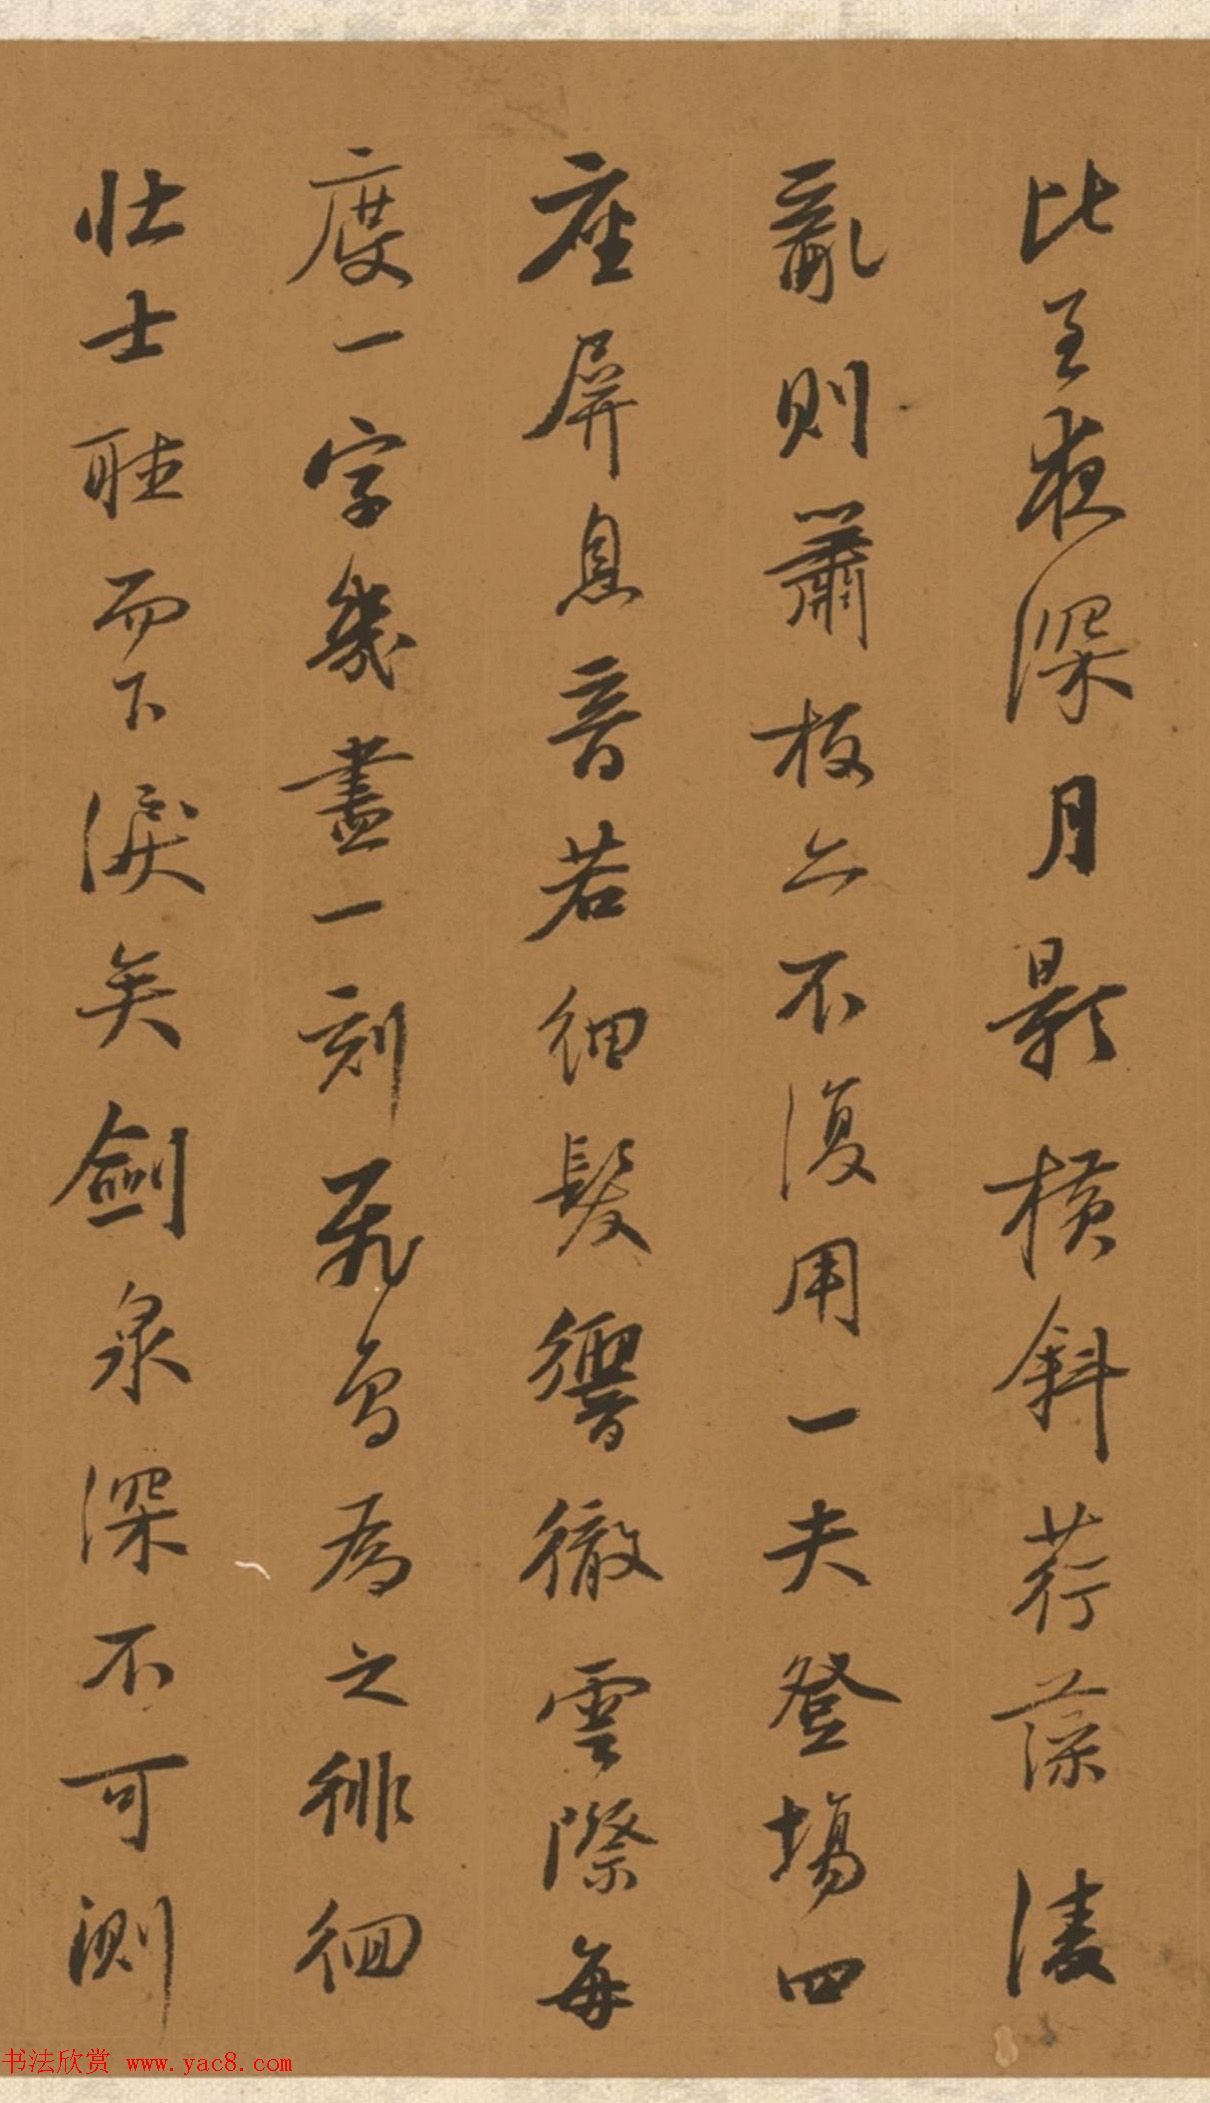 比至夜深月影橫斜荇藻淩
亂則簫板亦不復用一夫登塲四
座屏息音若細髮響徹雲際每
度一字幾盡一刻飛鳥為之徘徊
壯士聽而下淚矣劍泉深不可測
书法欣赏 www.yac8.com